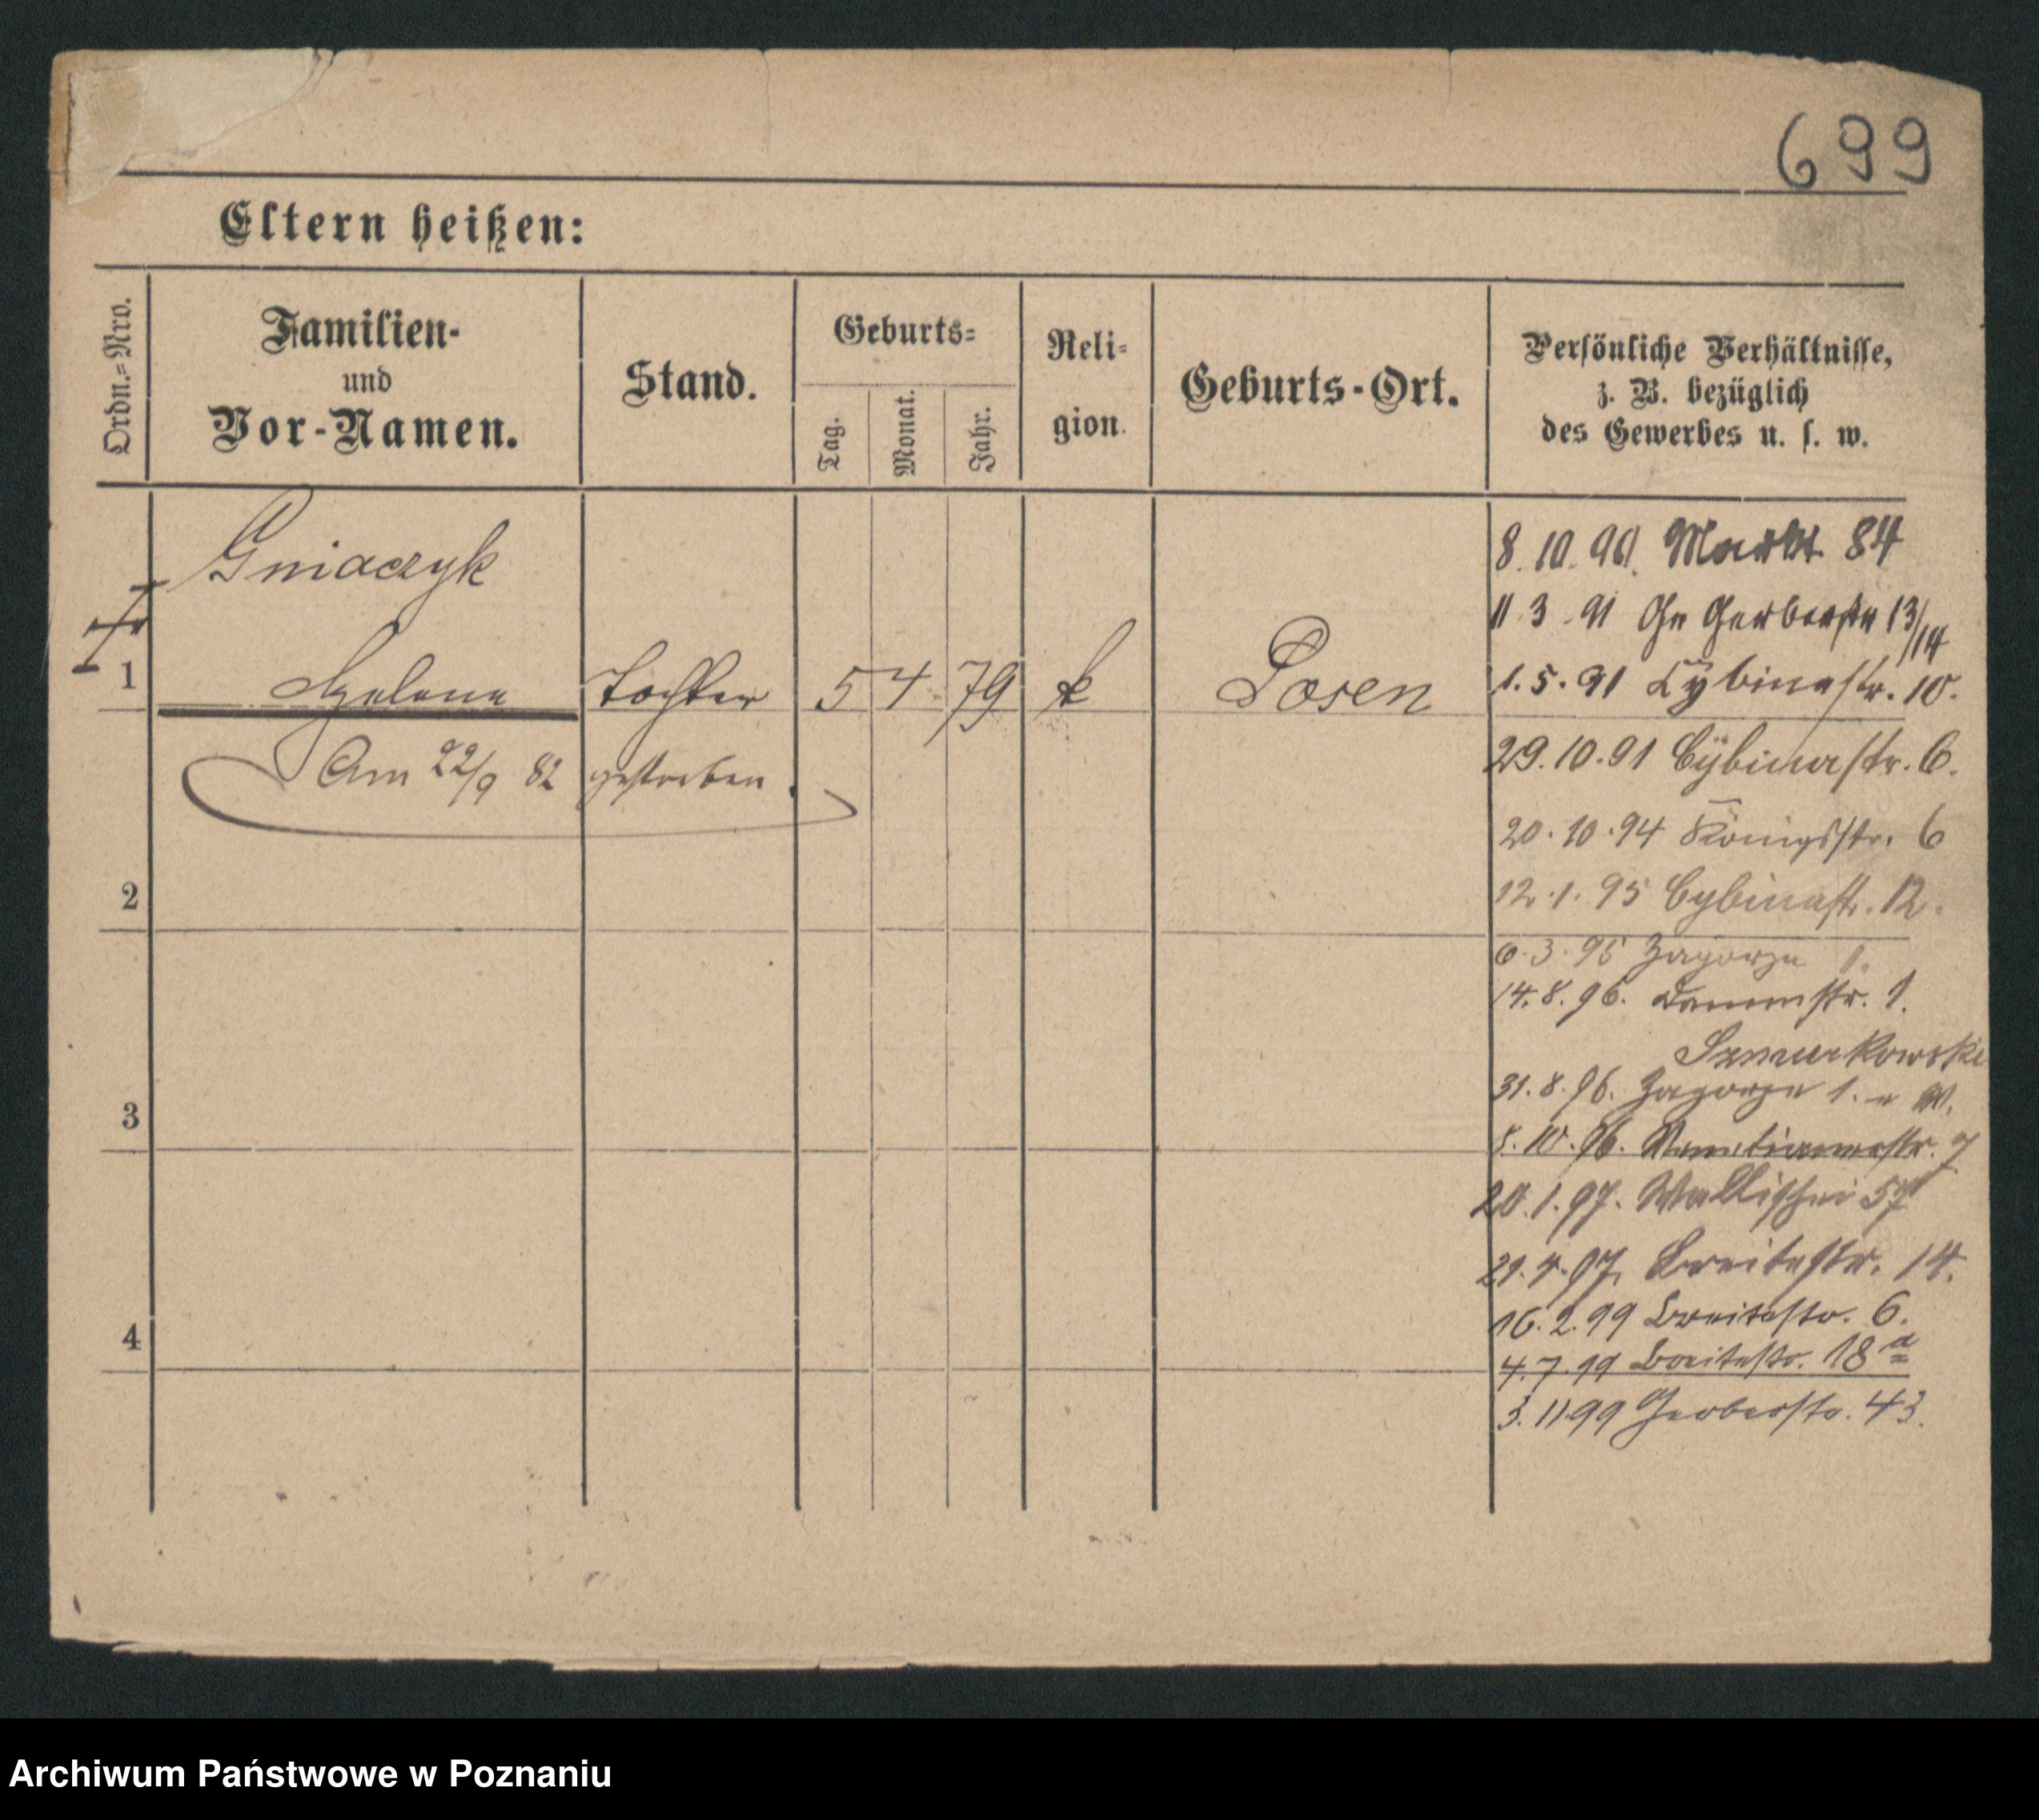 699
Eltern heißen:
Ordn.-Nro.
Familien-
und
Vor-Namen.
Stand.
Geburts-
Tag.
Monat.
Jahr.
Reli-
gion.
Geburts-Ort.
Persönliche Verhältnisse,
z. B. bezüglich
des Gewerbes u. s. w.
Gniaczyk
1 Helene Tochter 5 4. 79 k Posen
Am 22/9 82 gestorben.
2
3
4
8. 10. 90. Markt 84
11. 3. 91 Gr Gerberstr 13/14
1. 5. 91 Cybinastr. 10.
29. 10. 91 Cybinastr. 6.
20. 10. 94 Königsstr. 6
12. 1. 95 Cybinastr. 12.
6. 3. 95 Zagorze
14. 8. 96. Dammstr. 1.
31. 8. 96. Zagorze 1.
8. 10. 96. Venetianerstr. 7
20. 1. 97. Wallischei 57
29. 4. 97. Breitestr. 14.
16. 2. 99 Breitestr. 6.
4. 7. 99 Breitestr. 18 a
3. 11 99 Gerberstr. 43.
Archiwum Państwowe w Poznaniu